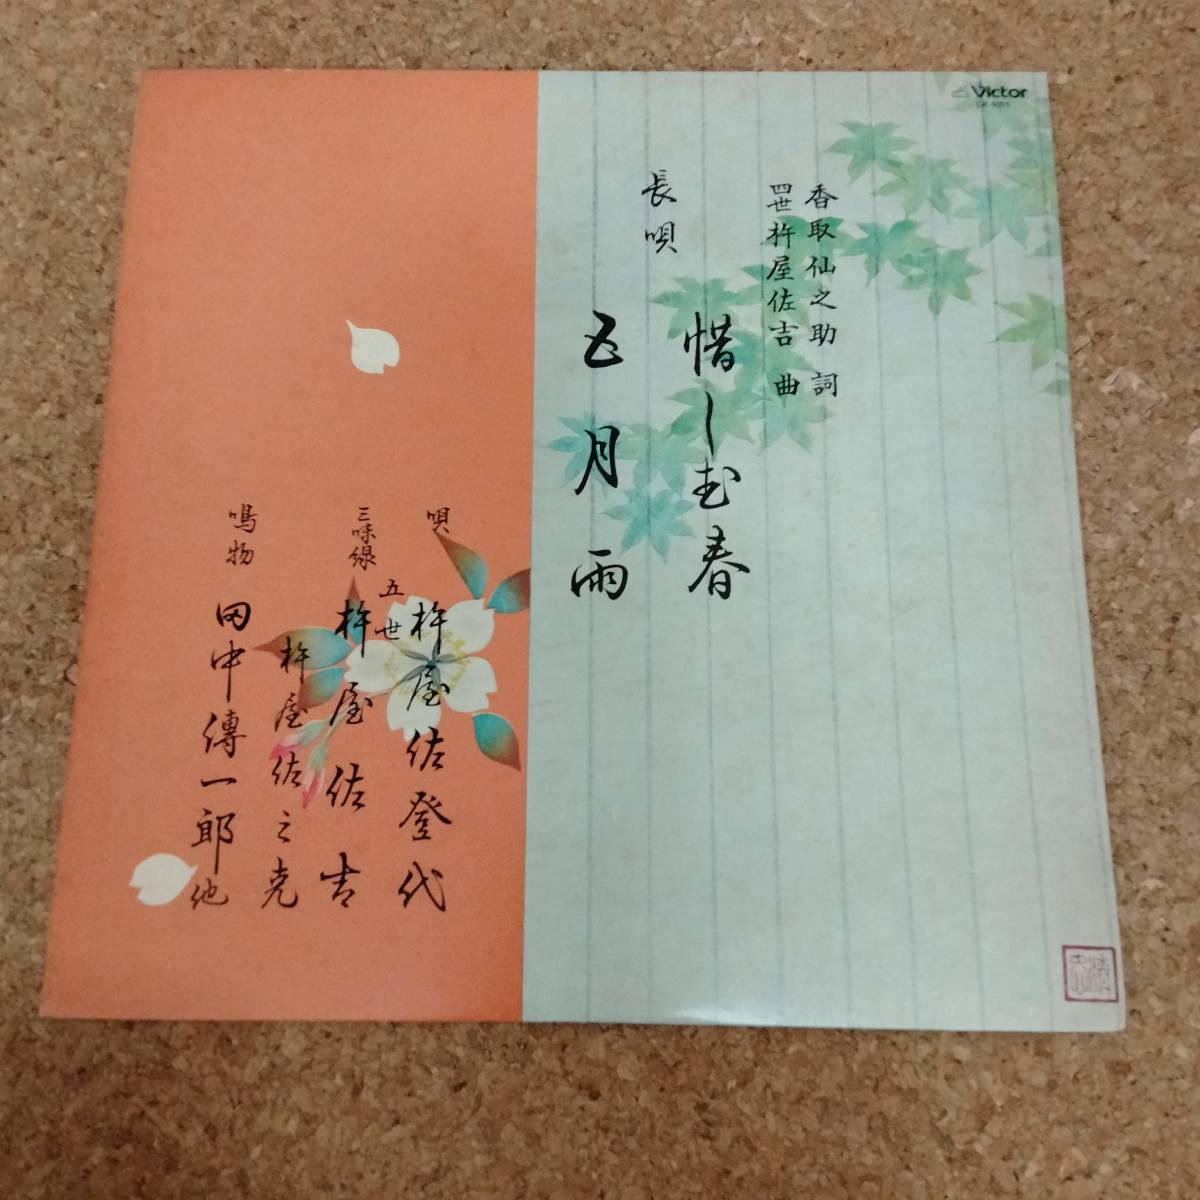 Victor
香取仙之助 詞
四世杵屋佐吉 曲
長唄
惜しむ春
五月雨
唄 杵屋佐登代
三味線 五世 杵屋佐吉
杵屋佐之克
鳴物 田中傳一郎他